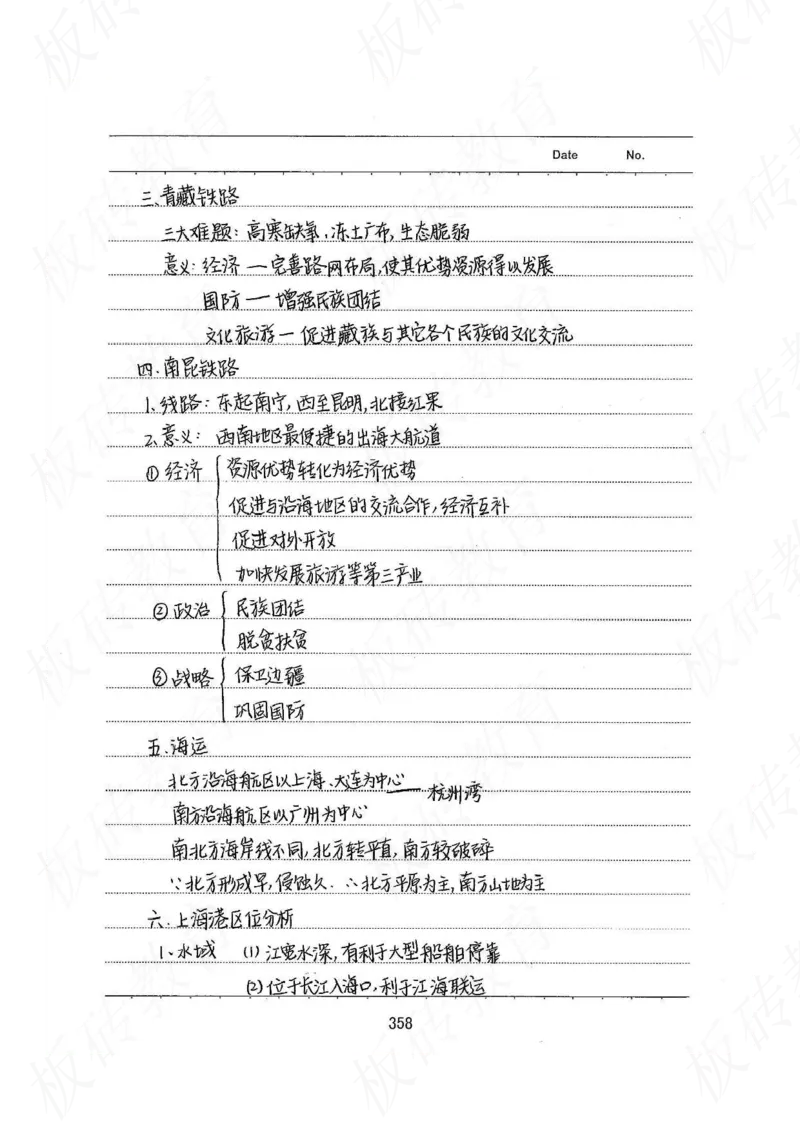 Date No.
三、青藏铁路
三大难题：高寒缺氧，冻土广布，生态脆弱
意义：经济 — 完善路网布局，使其优势资源得以发展
国防 — 增强民族团结
文化旅游 — 促进藏族与其它各个民族的文化交流
四、南昆铁路
1、线路：东起南宁，西至昆明，北接红果
2、意义：西南地区最便捷的出海大航道
①经济 资源优势转化为经济优势
促进与沿海地区的交流合作，经济互补
促进对外开放
加快发展旅游等第三产业
②政治 民族团结
脱贫扶贫
③战略 保卫边疆
巩固国防
五、海运
北方沿海航区以上海、大连为中心 — 杭州湾
南方沿海航区以广州为中心
南北方海岸线不同，北方较平直，南方较破碎
∵北方形成早，侵蚀久．∴北方平原为主，南方山地为主
六、上海港区位分析
1、水域 (1) 江宽水深，有利于大型船舶停靠
(2) 位于长江入海口，利于江海联运
358
板砖教育